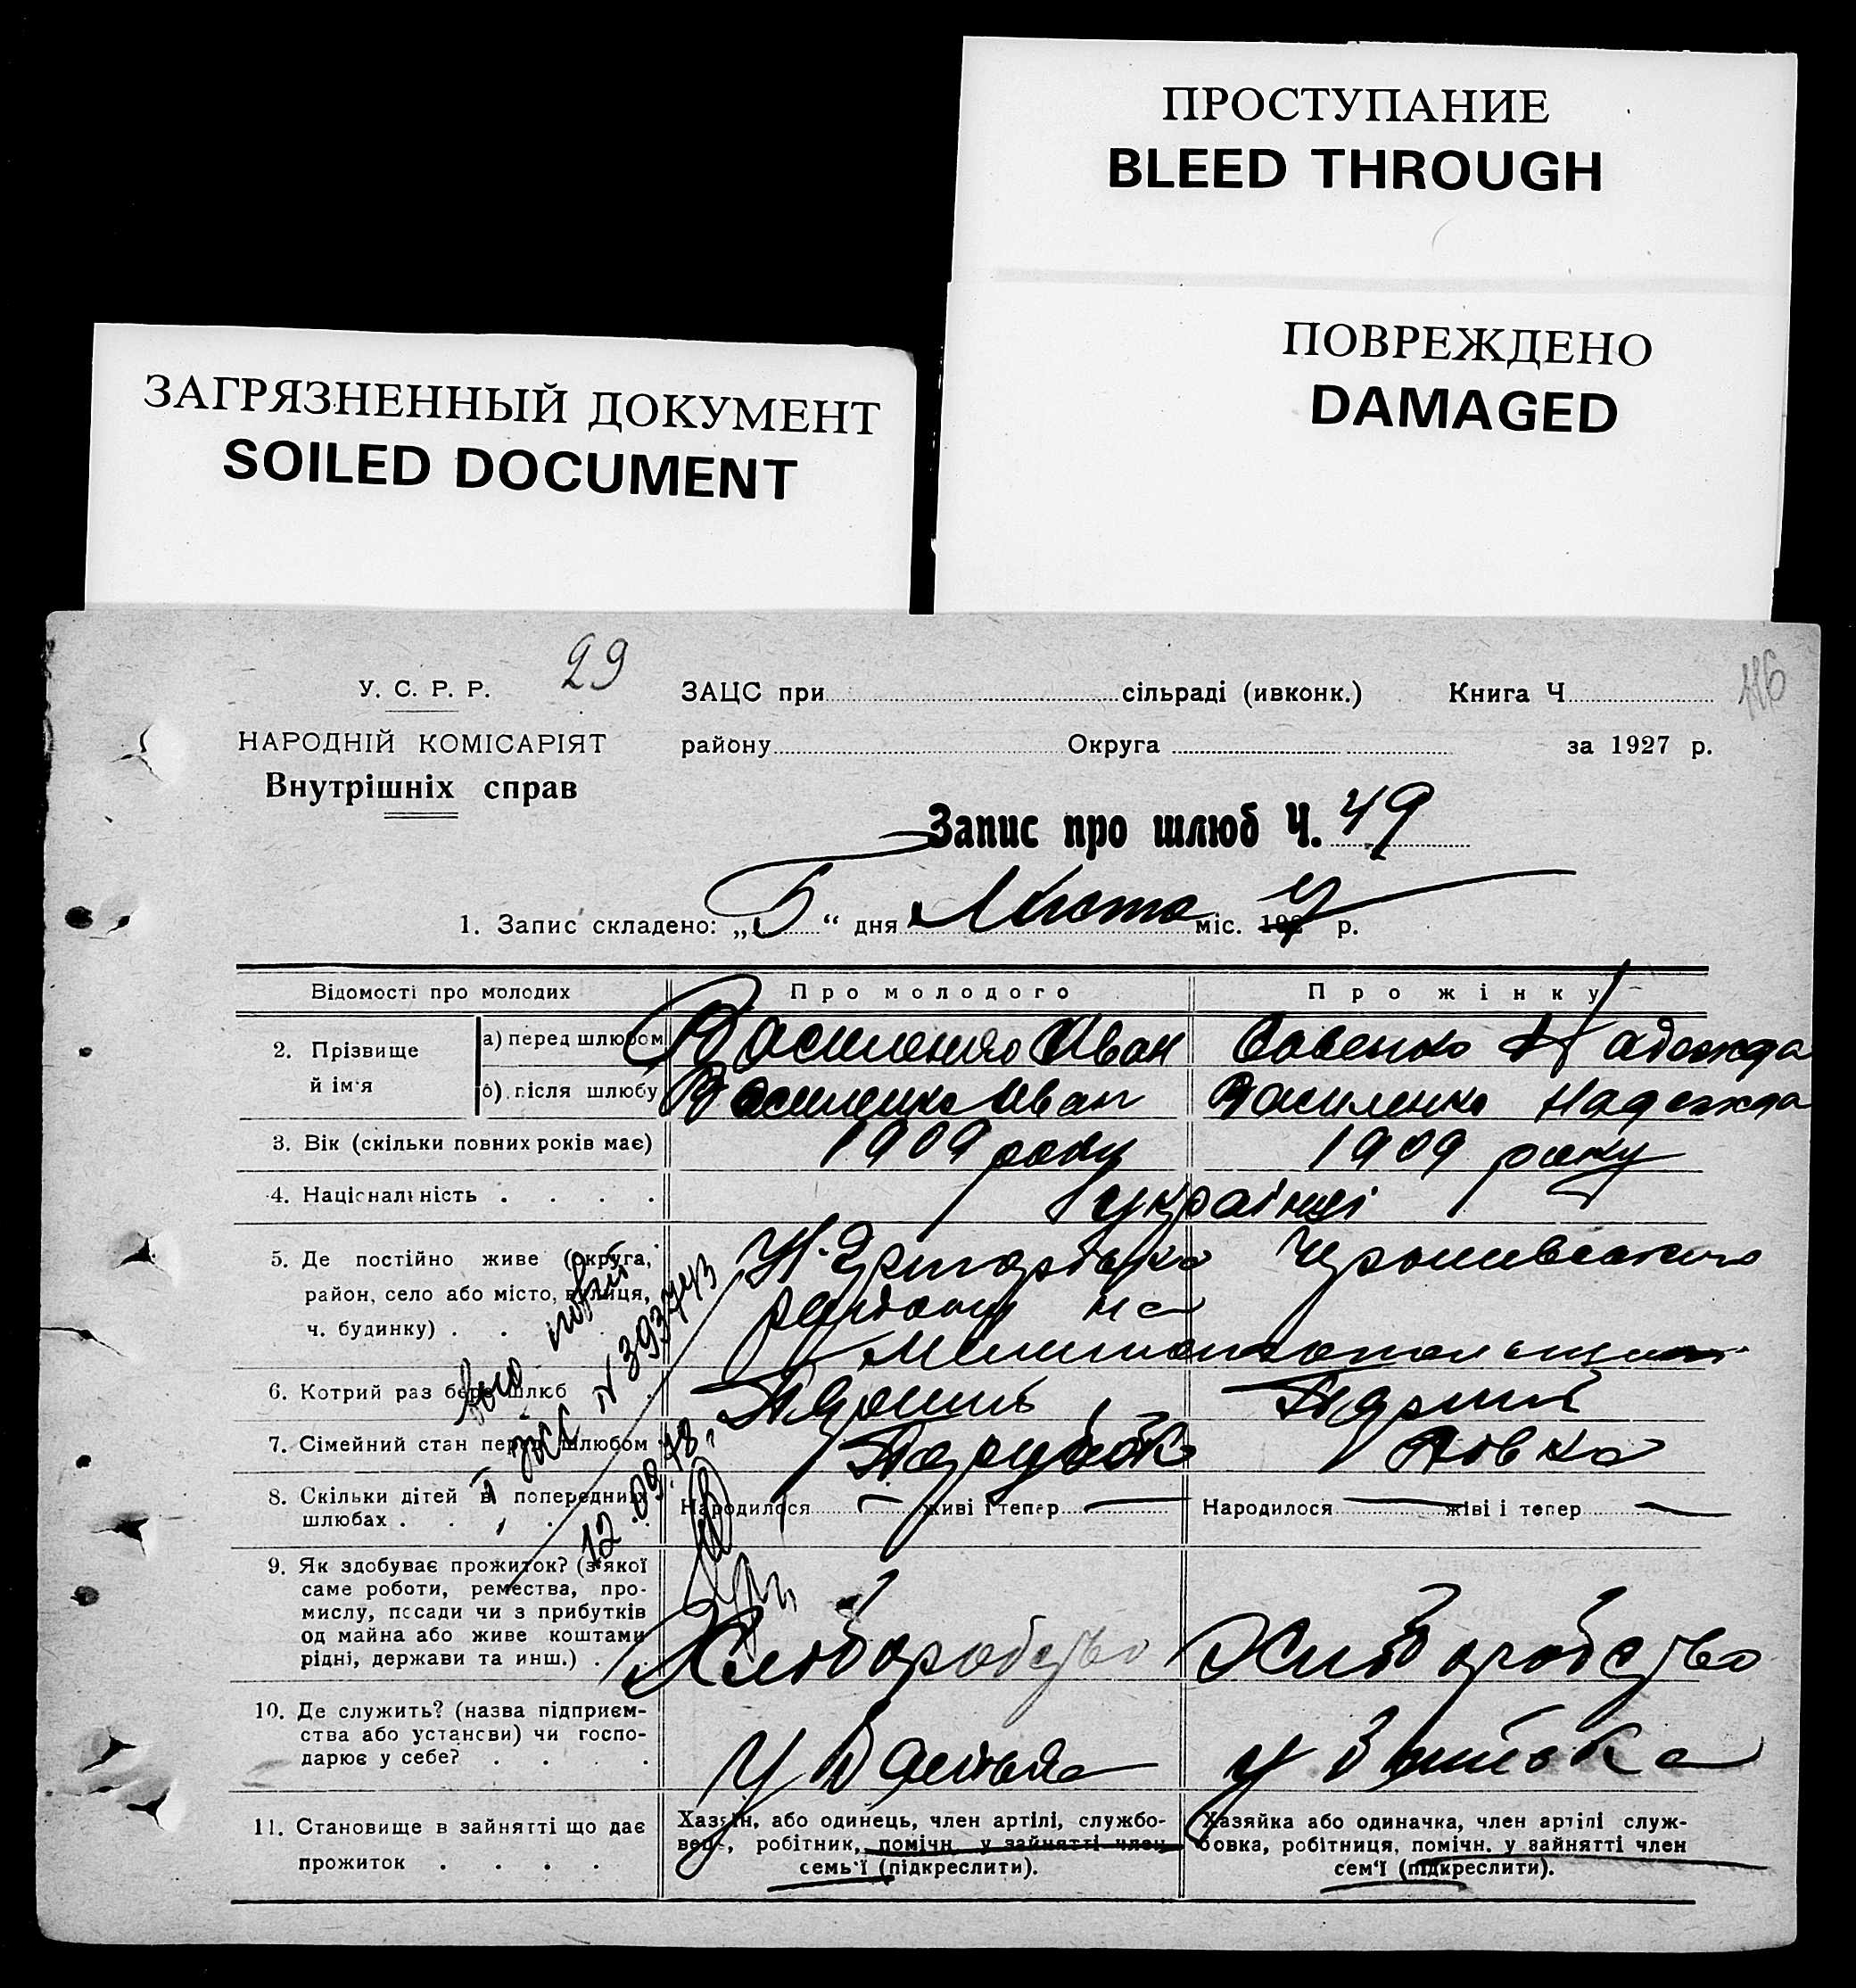 ПРОСТУПАНИЕ
BLEED THROUGH
ПОВРЕЖДЕНО
DAMAGED
ЗАГРЯЗНЕННЫЙ ДОКУМЕНТ
SOILED DOCUMENT
29
116
У. С. Р. Р.
НАРОДНІЙ КОМІСАРІЯТ
Внутрішніх справ
ЗАЦС при сільраді (ивконк.) Книга Ч.
району Округа за 1927 р.
Запис про шлюб Ч. 49
1. Запис складено: „5“ дня Листо міс. 1927 р.
Відомості про молодих Про молодого Про жінку
2. Прізвище й ім'я
а) перед шлюбом Василенко Иван Савенко Надежда
б) після шлюбу Василенко Иван Василенко Надежда
3. Вік (скільки повних років має) 1909 року 1909 року
4. Національність українці
5. Де постійно живе (округа,
район, село або місто, вулиця,
ч. будинку)
району на
6. Котрий раз бере шлюб Перший
7. Сімейний стан перед шлюбом Парубок Дівка
8. Скільки дітей в попередніх
шлюбах
Народилося — живі і тепер — Народилося — жіві і тепер —
N 393743
12.09.78.
9. Як здобуває прожиток? (з якої
саме роботи, ремества, про-
мислу, посади чи з прибутків
од майна або живе коштами
рідні, держави та инш.)
Хліборобство Хліборобство
10. Де служить? (назва підприєм-
ства або установи) чи госпо-
дарює у себе?
у батька у батька
11. Становище в зайнятті що дає
прожиток
Хазяїн, або одинець, член артілі, службо-
вець, робітник, помічн. у зайнятті член
семь'ї (підкреслити).
Хазяйка або одиначка, член артілі служ-
бовка, робітниця, помічн. у зайнятті член
сем'ї (підкреслити).